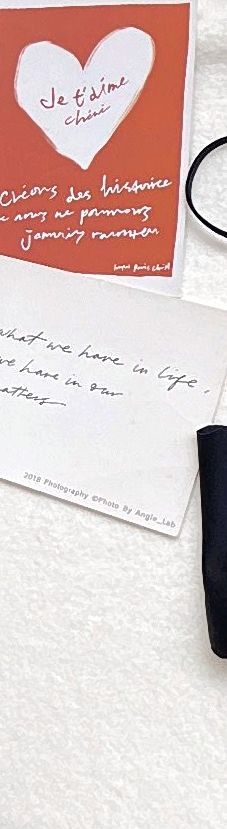 Je t'aime
chéri
Créons des histoires
nous ne pourrons
jamais raconter
what we have in life,
have in our
2018 Photography ©Photo By Angie_Lab